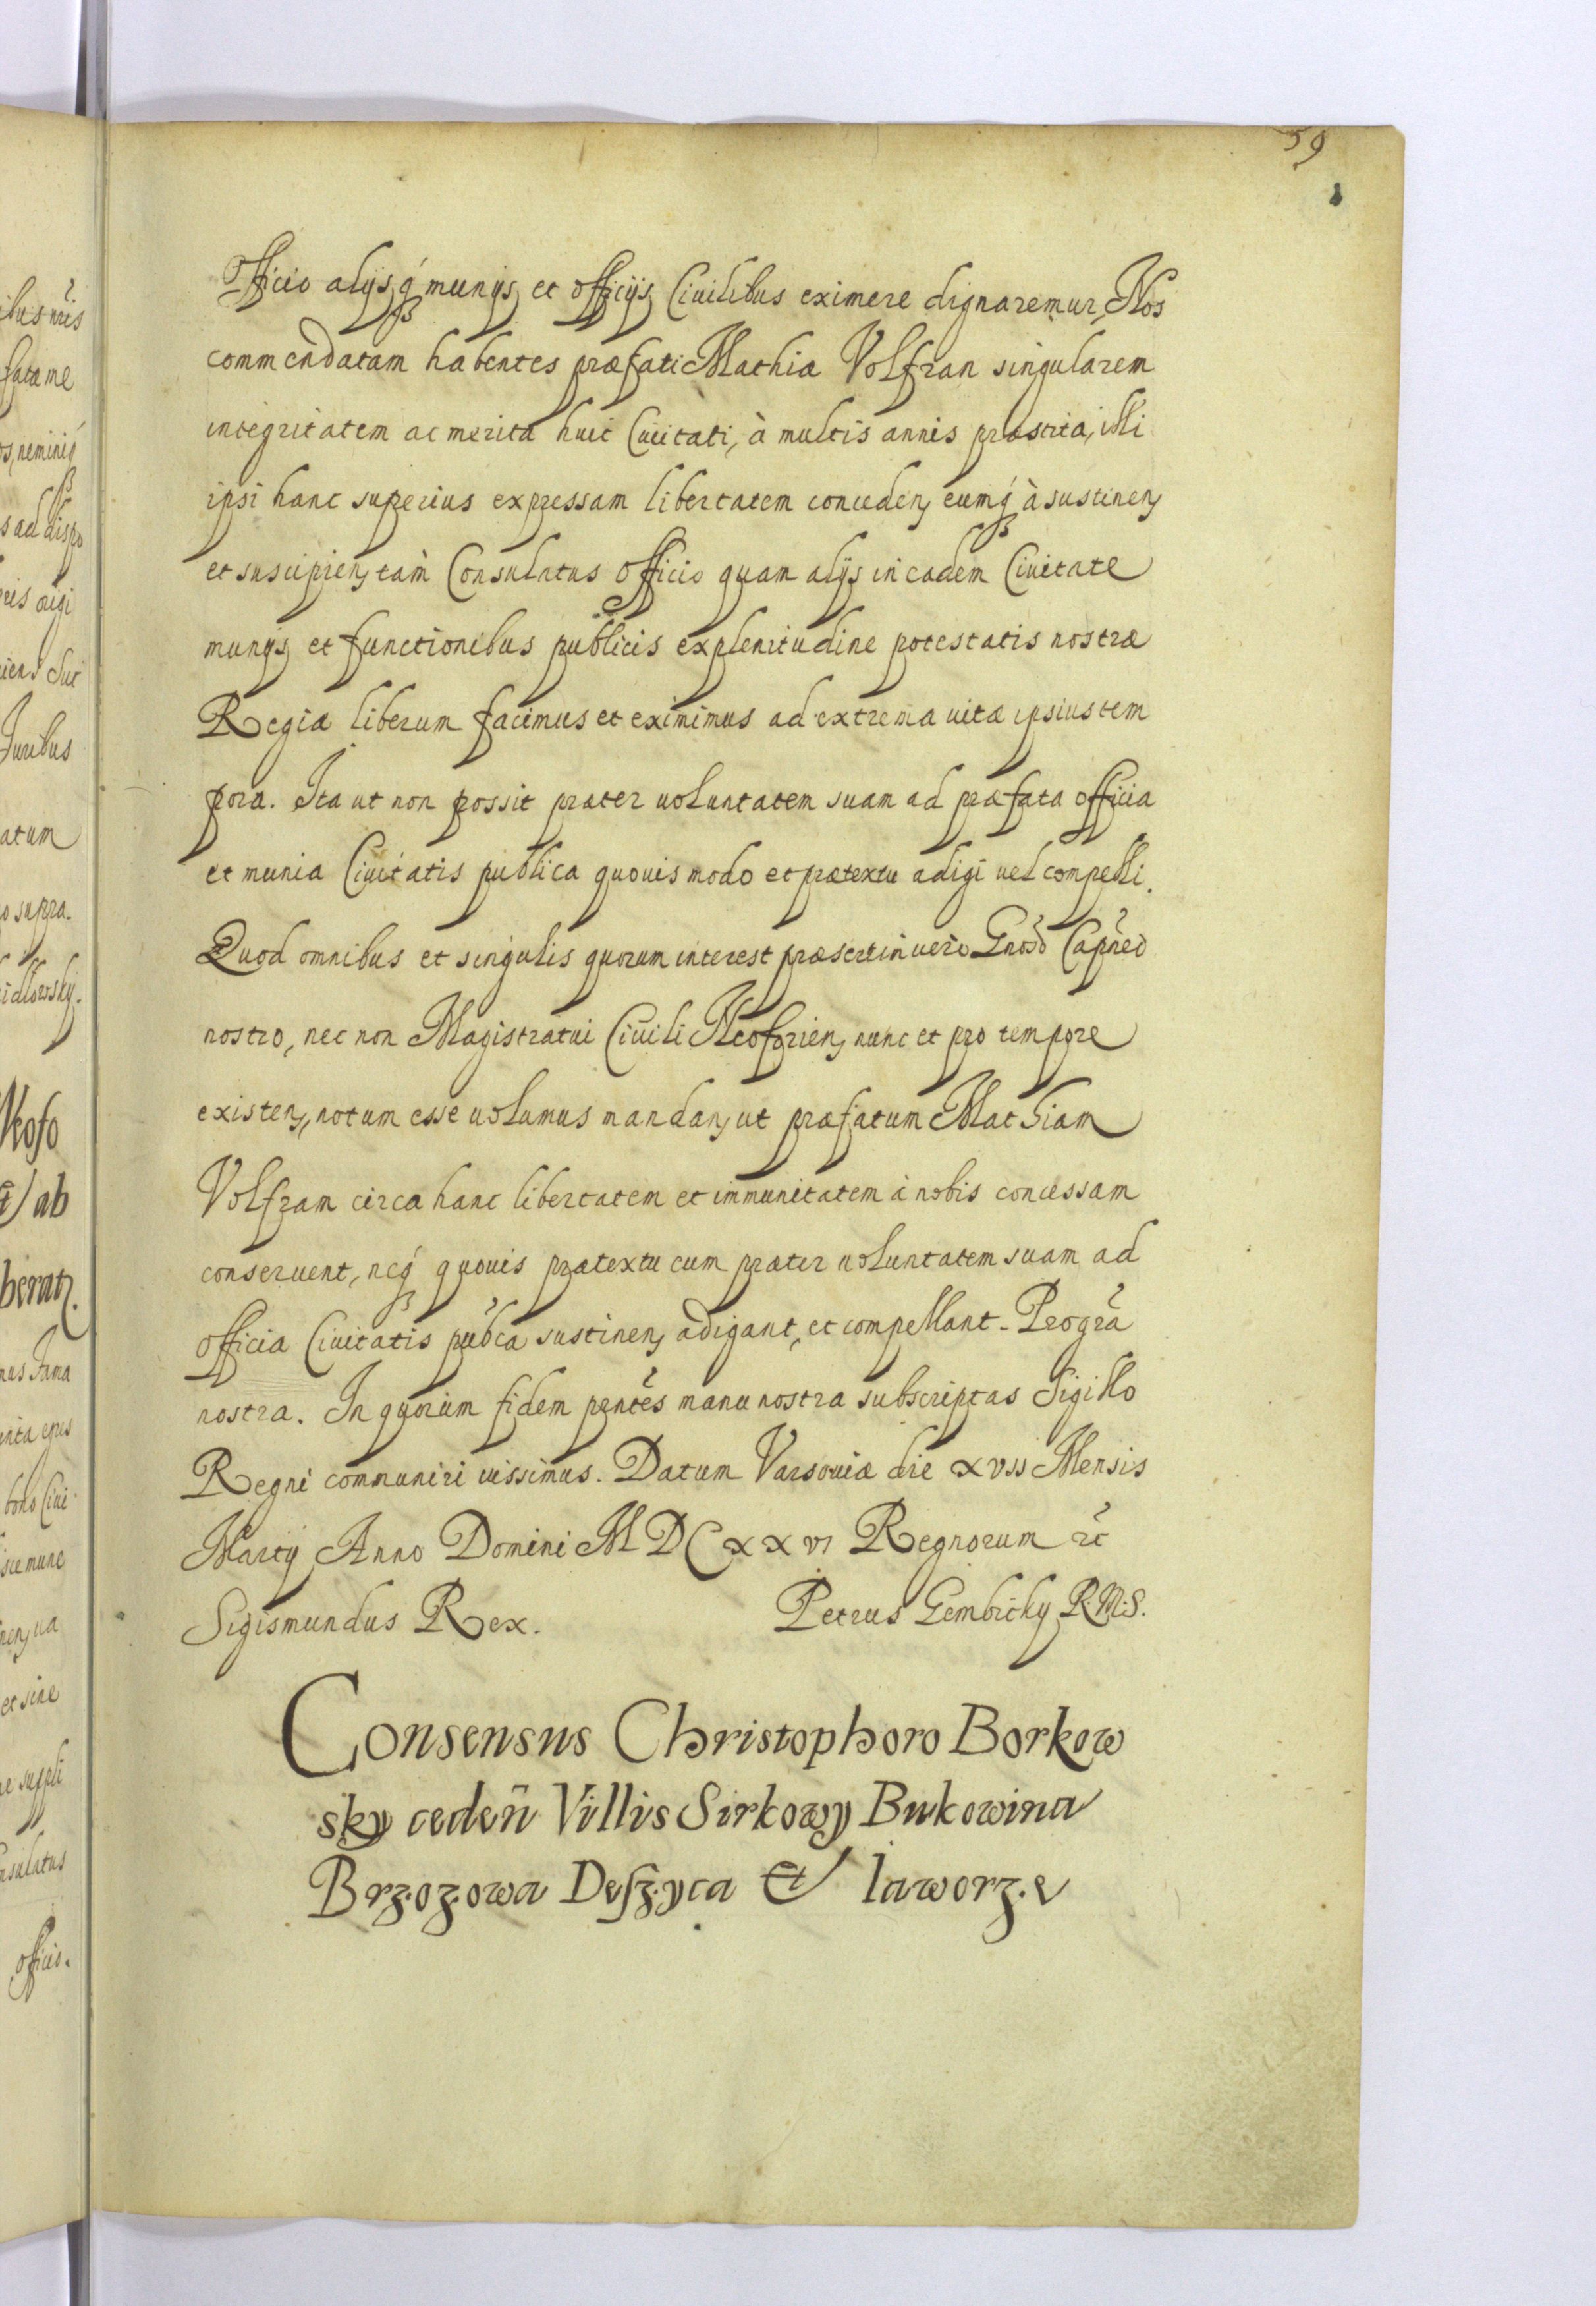 59
Officio alijsq́ munijs et officijs Ciuilibus eximere dignaremur, Nos
commendatam habentes præfati Mathiæ Volfran singularem
integritatem ac merita huic Ciuitati, à multis annis præstita, illi
ipsi hanc superius expressam libertatem conceden, eumq́ à sustinen,
et suscipien, tam̀ Consulatus officio quam alijs in eadem Ciuitate
munijs et functionibus publicis ex plenitudine potestatis nostræ
Regiæ liberum facimus et eximimus ad extrema uitæ ipsius tem
pora. Ita ut non possit præter uoluntatem suam ad præfata officia
et munia Ciuitatis publica quouis modo et prætextu adigi uel compelli.
Quod omnibus et singulis quorum interest præsertim uero Gnoso Capneo
nostro, nec non Magistratui Ciuili Neoforien, nunc et pro tempore
existen, notum esse uolumus mandan, ut præfatum Mathiam
Volfram circa hanc libertatem et immunitatem à nobis concessam
conseruent, neq́ quouis prætextu eum præter uoluntatem suam ad
officia Ciuitatis pubca sustinen, adigant, et compellant. Pro gra
nostra. In quorum fidem pentes manu nostra subscriptas Sigillo
Regni communiri iussimus. Datum Varsouiæ die xvıı Mensis
Martij Anno Domini MDCxxvı Regnorum etc
Sigismundus Rex. Petrus Gembicky R.M.S.
Consensus Christophoro Borkow
sky ceden̄ Villis Sirkowy Bukowina
Brzozowa Deszyca et Iaworze